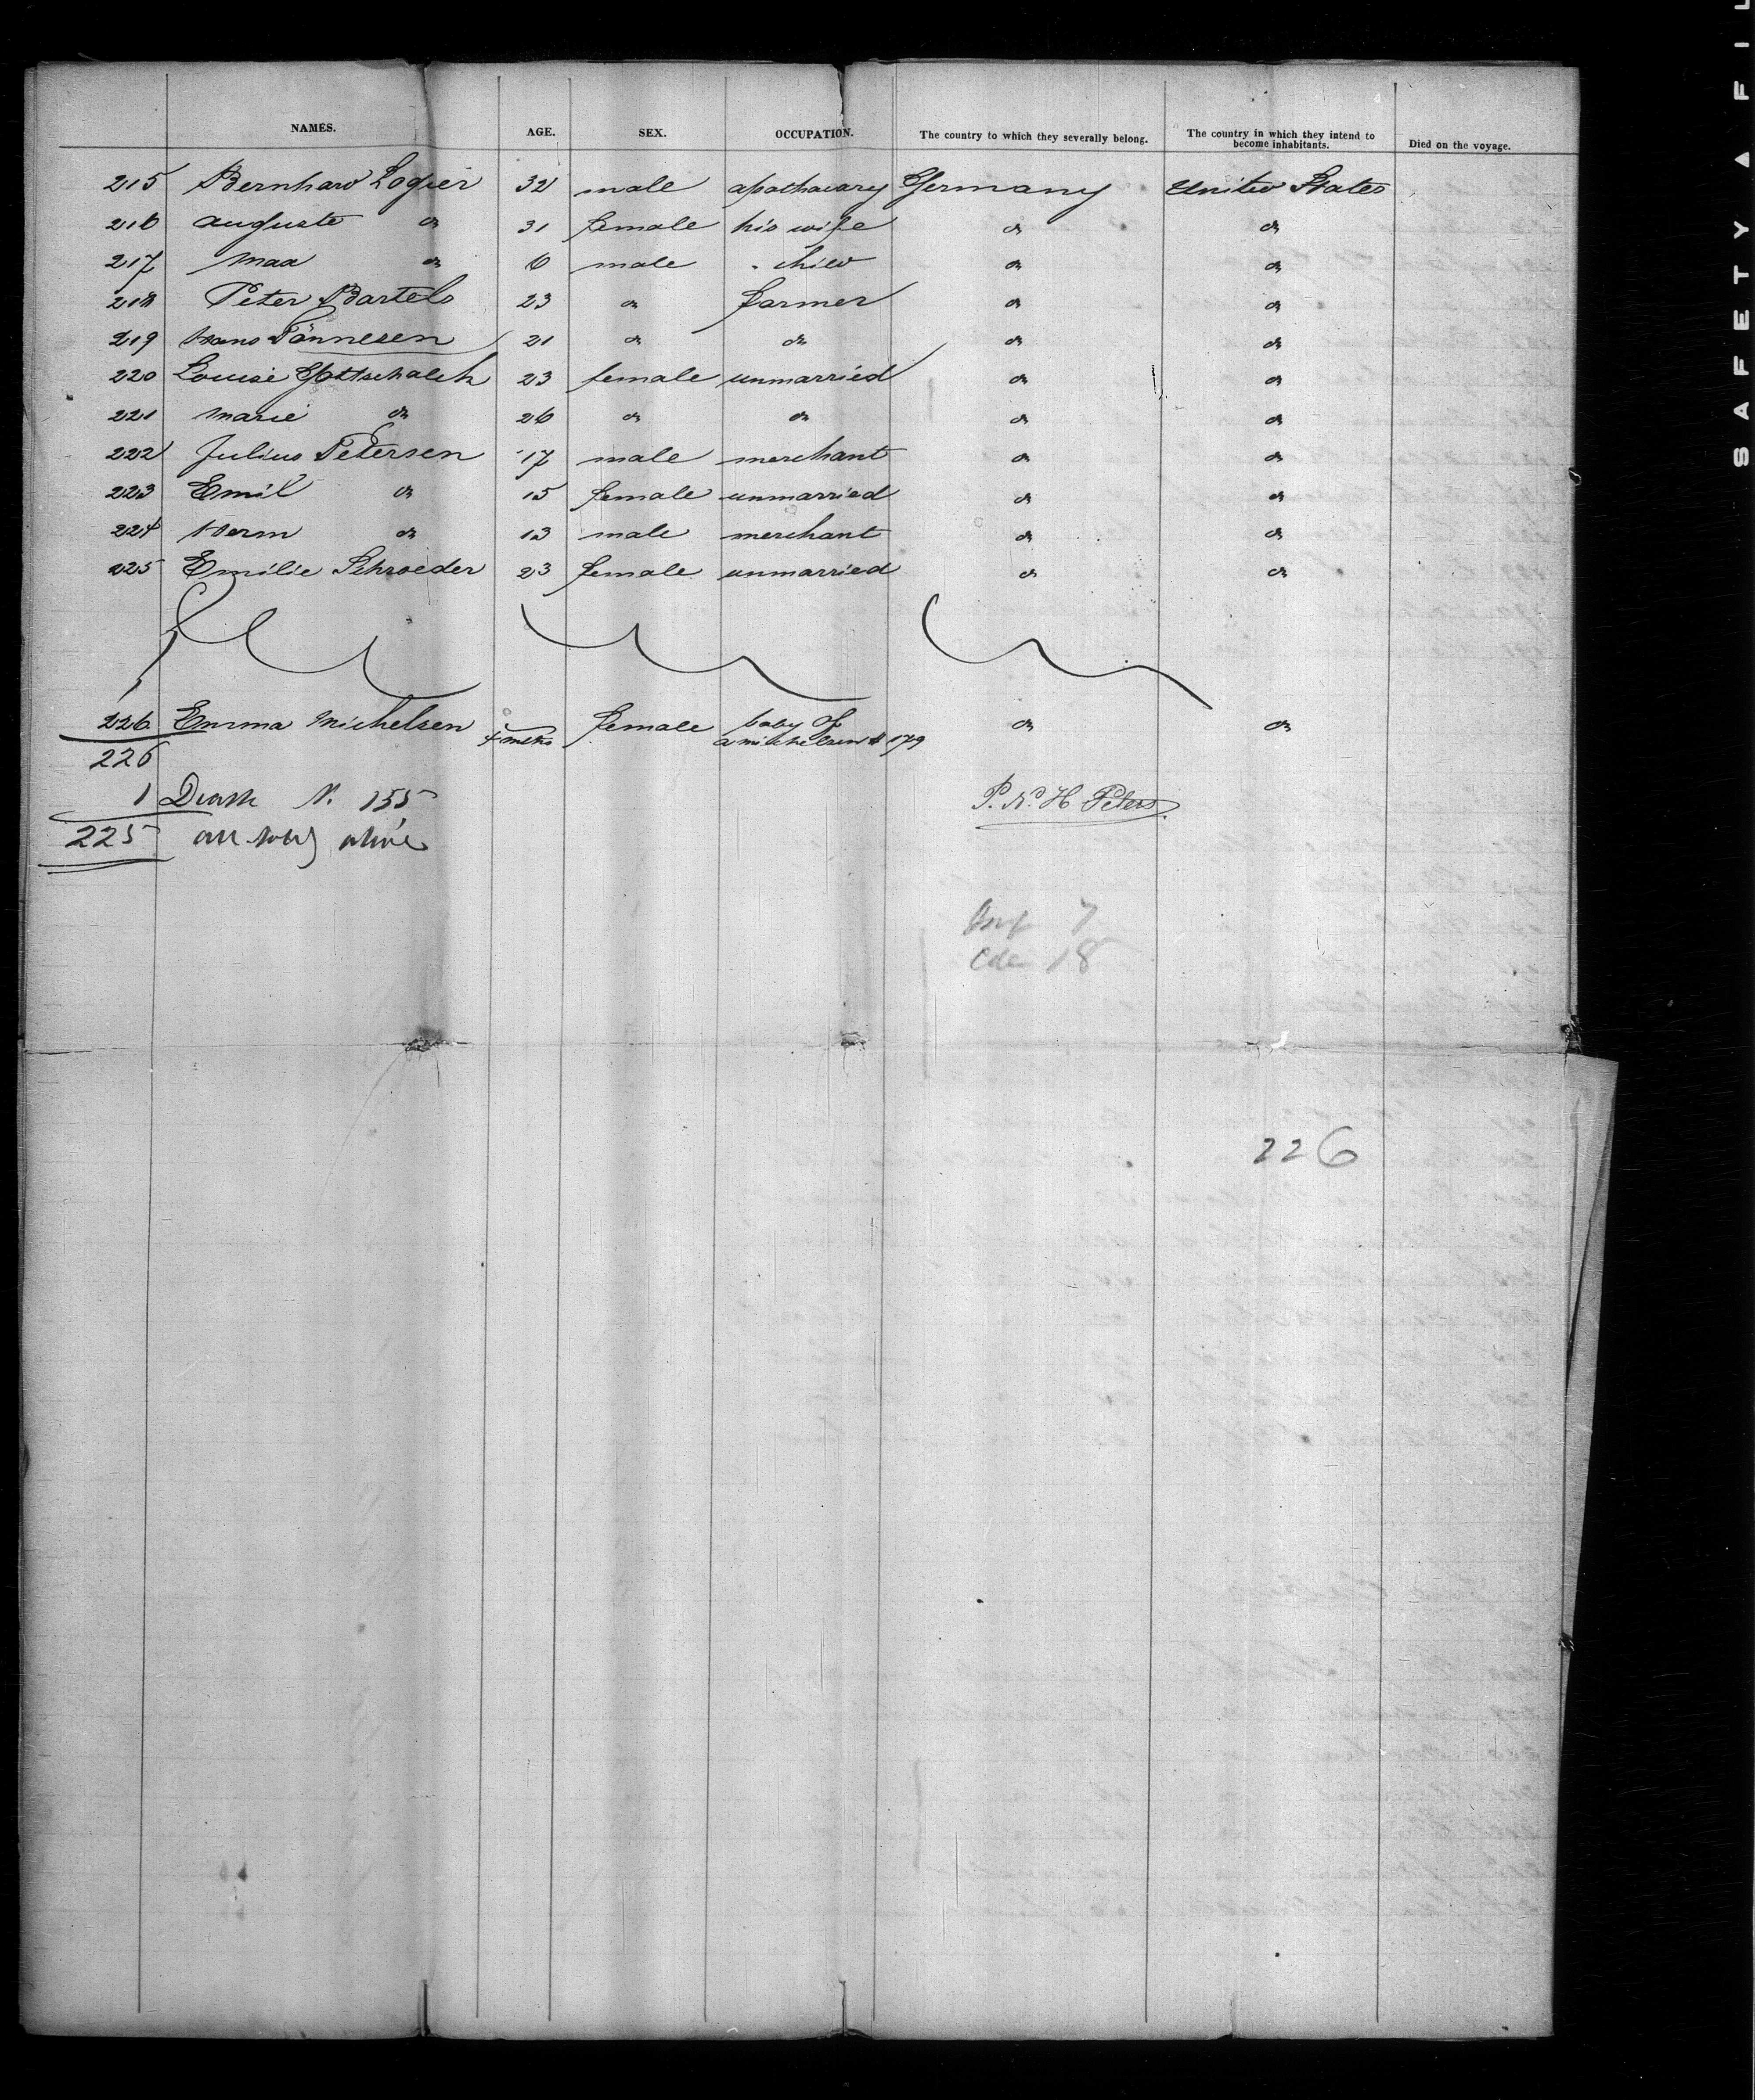 NAMES. AGE. SEX. OCCUPATION. The country to which they severally belong. The country in which they intend to become inhabitants. Died on the voyage.
215 Bernhard Logier 32 male apothecary Germany United States
216 Auguste do 31 female his wife do do
217 Max do 6 male " child do do
218 Peter Bartels 23 do farmer do do
219 Hans Tönnesen 21 do do do do
220 Louise Gottschalck 23 female unmarried do do
221 Marie do 26 do do do do
222 Julius Petersen 17 male merchant do do
223 Emil do 15 female unmarried do do
224 Herm do 13 male merchant do do
225 Emilie Schroeder 23 female unmarried do do
226 Emma Michelsen 4 mths female baby of a michelsen # 179 do do
226
1 Death N. 155
225 all alive
P. N. H Peters
7
18
226
SAFETY ▲ FIL